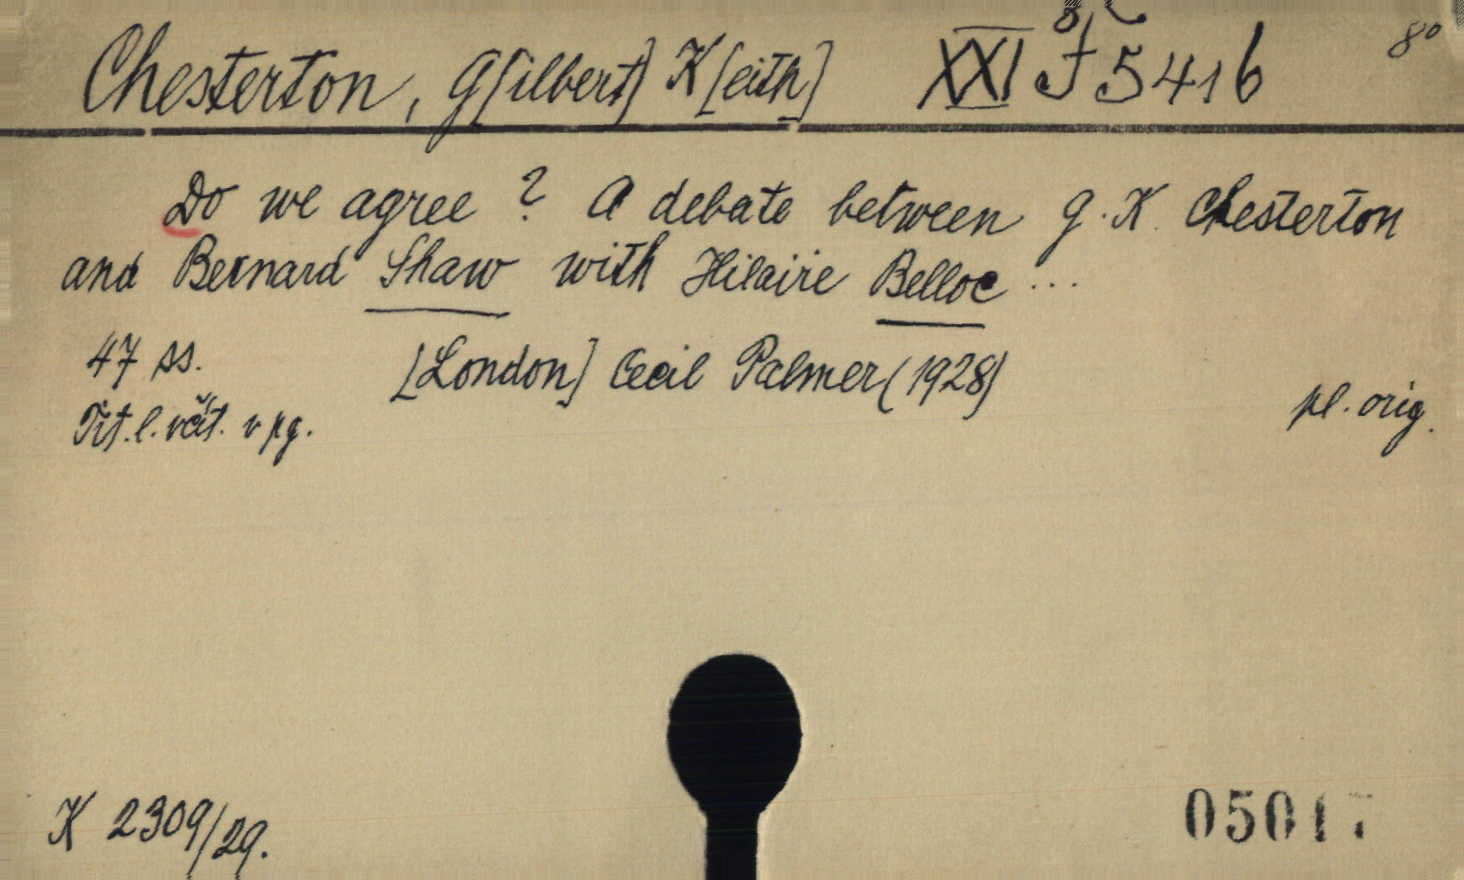 Chesterton, G[ilbert] K[eith] XXI J 5416 8°
Do we agree? A debate between G. K. Chesterton
and Bernard Shaw with Hilaire Belloc ...
47 ss. [London] Cecil Palmer (1928)
Tit. l. včít. v pg. pl. orig.
K 2309/29.
0501